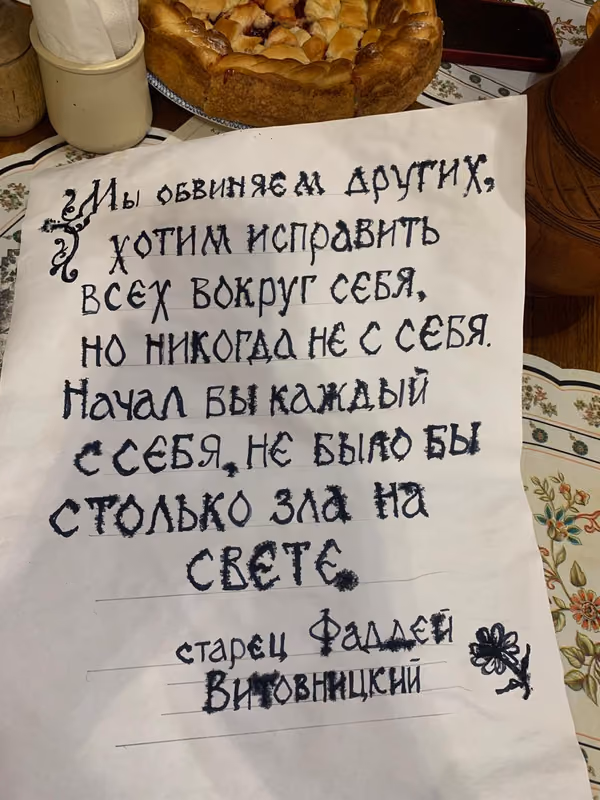 Мы обвиняем других,
хотим исправить
всех вокруг себя,
но никогда не с себя.
Начал бы каждый
с себя, не было бы
столько зла на
свете.
старец Фаддей
Витовницкий